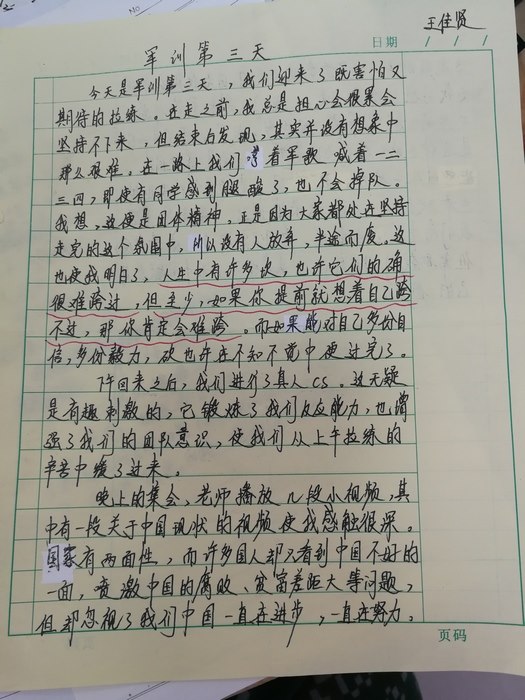 No
王佳贤
日期 / / /
军训第三天
今天是军训第三天，我们迎来了既害怕又
期待的拉练。在走之前，我总是担心会很累会
坚持不下来，但结束后发现，其实并没有想象中
那么艰难，在一路上我们唱着军歌 喊着一二
三四，即使有同学感到腿酸了，也不会掉队。
我想，这便是团体精神，正是因为大家都处在坚持
走完的这个氛围中，所以没有人放弃，半途而废。这
也使我明白了，人生中有许多坎，也许它们的确
很难跨过，但至少，如果你提前就想着自己跨
不过，那你肯定会难跨。而如果能对自己多份自
信，多份毅力，砍也许在不知不觉中便过完了。
下午回来之后，我们进行了真人cs。这无疑
是有趣刺激的，它锻炼了我们反应能力，也增
强了我们的团队意识，使我们从上午拉练的
辛苦中缓了过来。
晚上的集会，老师播放几段小视频，其
中有一段关于中国现状的视频使我感触很深。
国家有两面性，而许多国人却只看到中国不好的
一面，愤激中国的腐败、贫富差距大等问题，
但却忽视了我们中国一直在进步，一直在努力。
页码